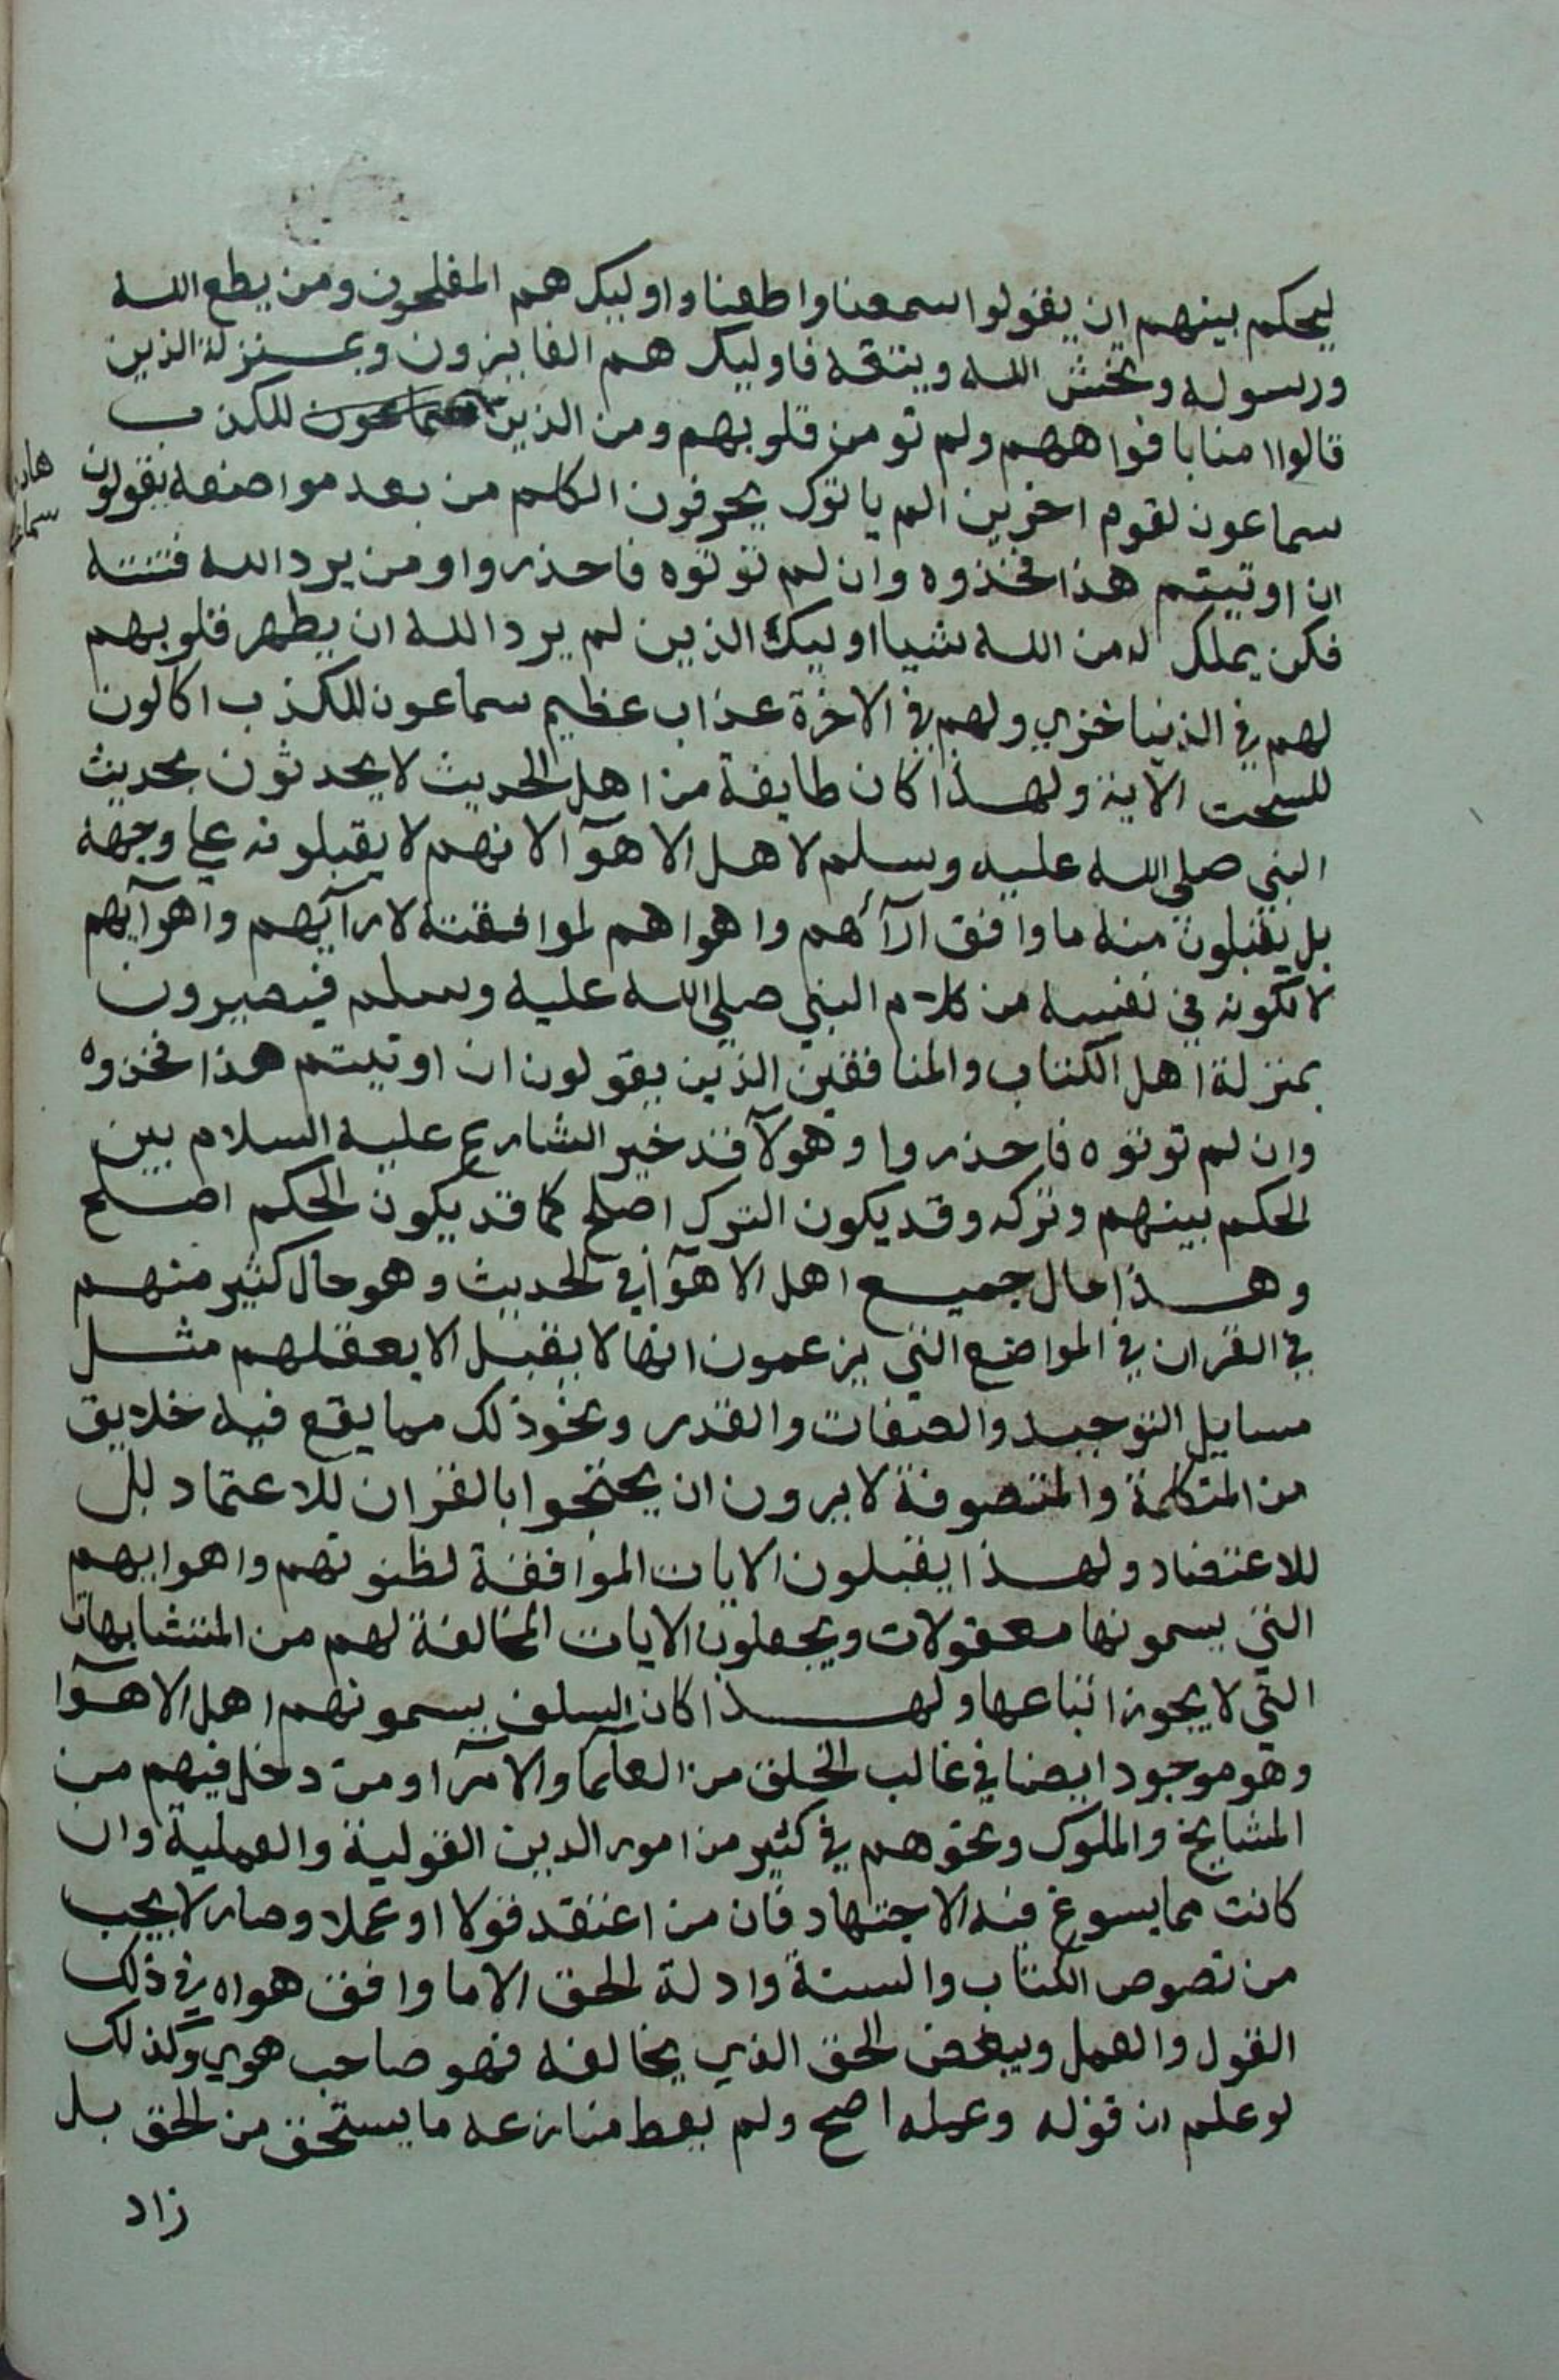 ليحكم بينهم ان يقولوا سمعنا واطعنا واوليك هم المفلحون ومن يطع الله
ورسوله ويخش الله ويتقه فاوليك هم الفايزون وبمنزلة الذين
قالوا امنا بافواههم ولم تومن قلوبهم ومن الذين سماعون للكذب
سماعون لقوم اخرين الم ياتوك يحرفون الكلم من بعد مواضعه يقولون
ان اوتيتم هذا فخذوه وان لم توتوه فاحذروا ومن يرد الله فتنته
فكن يملك له من الله شيا اوليك الذين لم يرد الله ان يطهر قلوبهم
لهم في الدنيا خزي ولهم في الاخرة عذاب عظيم سماعون للكذب اكالون
للسحت الاية ولهذا كان طايفة من اهل الحديث لا يحدثون بحديث
النبي صلى الله عليه وسلم لاهل الاهوآ لانهم لا يقبلونه علي وجهه
بل يقبلون منه ما وافق ارآئهم واهواهم لموافقته لارآيهم واهوآيهم
لا لكونه في نفسه من كلام النبي صلي الله عليه وسلم فيصيرون
بمنزلة اهل الكتاب والمنافقين الذين يقولون ان اوتيتم هذا فخذوه
وان لم توتوه فاحذروا وهولآ قد خير الشارع عليه السلام بين
الحكم بينهم وتركه وقد يكون الترك اصلح كما قد يكون الحكم اصلح
وهذا حال جميع اهل الاهوآ في الحديث وهو حال كثير منهم
في القران في المواضع التي يزعمون انها لا يقبل الا بعقلهم مثل
مسايل التوحيد والصفات والقدر ونحو ذلك مما يقع فيه خلايق
من المتكلمة والمتصوفة لا يرون ان يحتجوا بالقران للاعتماد بل
للاعتضاد ولهذا يقبلون الايات الموافقة لظنونهم واهوايهم
التي يسمونها معقولات ويجعلون الايات المخالفة لهم من المتشابهات
التي لا يجوز اتباعها ولهذا كان السلف يسمونهم اهل الاهوآ
وهو موجود ايضا في غالب الخلق من العلمآ والامرآ ومن دخل فيهم من
المشايخ والملوك ونحوهم في كثير من امور الدين القولية والعملية وان
كانت مما يسوغ فيه الاجتهاد فان من اعتقد قولا او عملا وصار لا يحب
من نصوص الكتاب والسنة وادلة الحق الا ما وافق هواه في ذلك
القول والعمل ويبغض الحق الذي يخالفه فهو صاحب هوي وكذلك
لو علم ان قوله وعمله اصح ولم يعط منازعه ما يستحق من الحق بل
زاد